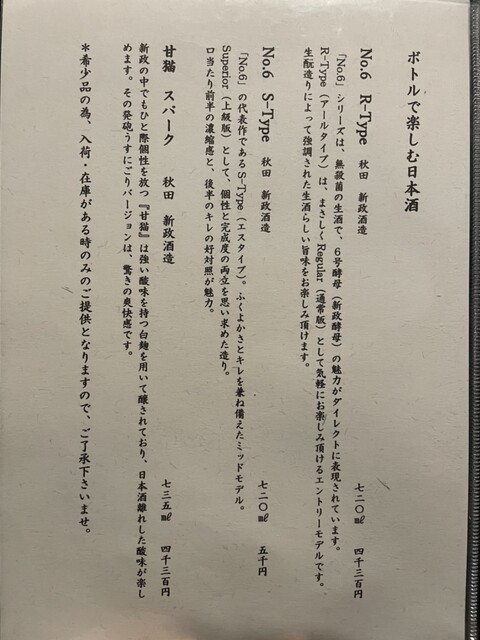 ボトルで楽しむ日本酒
No.6 R-Type 秋田 新政酒造 七二〇㎖ 四千三百円
「No.6」シリーズは、無殺菌の生酒で、6号酵母（新政酵母）の魅力がダイレクトに表現されています。
R-Type（アールタイプ）は、まさしくRegular（通常版）として気軽にお楽しみ頂けるエントリーモデルです。
生酛造りによって強調された生酒らしい旨味をお楽しみ頂けます。
No.6 S-Type 秋田 新政酒造 七二〇㎖ 五千円
「No.6」の代表作であるS-Type（エスタイプ）。ふくよかさとキレを兼ね備えたミッドモデル。
Superior（上級版）として、個性と完成度の両立を思い求めた造り。
口当たり前半の濃縮感と、後半のキレの好対照が魅力。
甘猫 スパーク 秋田 新政酒造 七三五㎖ 四千三百円
新政の中でもひと際個性を放つ『甘猫』は強い酸味を持つ白麹を用いて醸されており、日本酒離れした酸味が楽し
めます。その発砲うすにごりバージョンは、驚きの爽快感です。
＊希少品の為、入荷・在庫がある時のみのご提供となりますので、ご了承下さいませ。